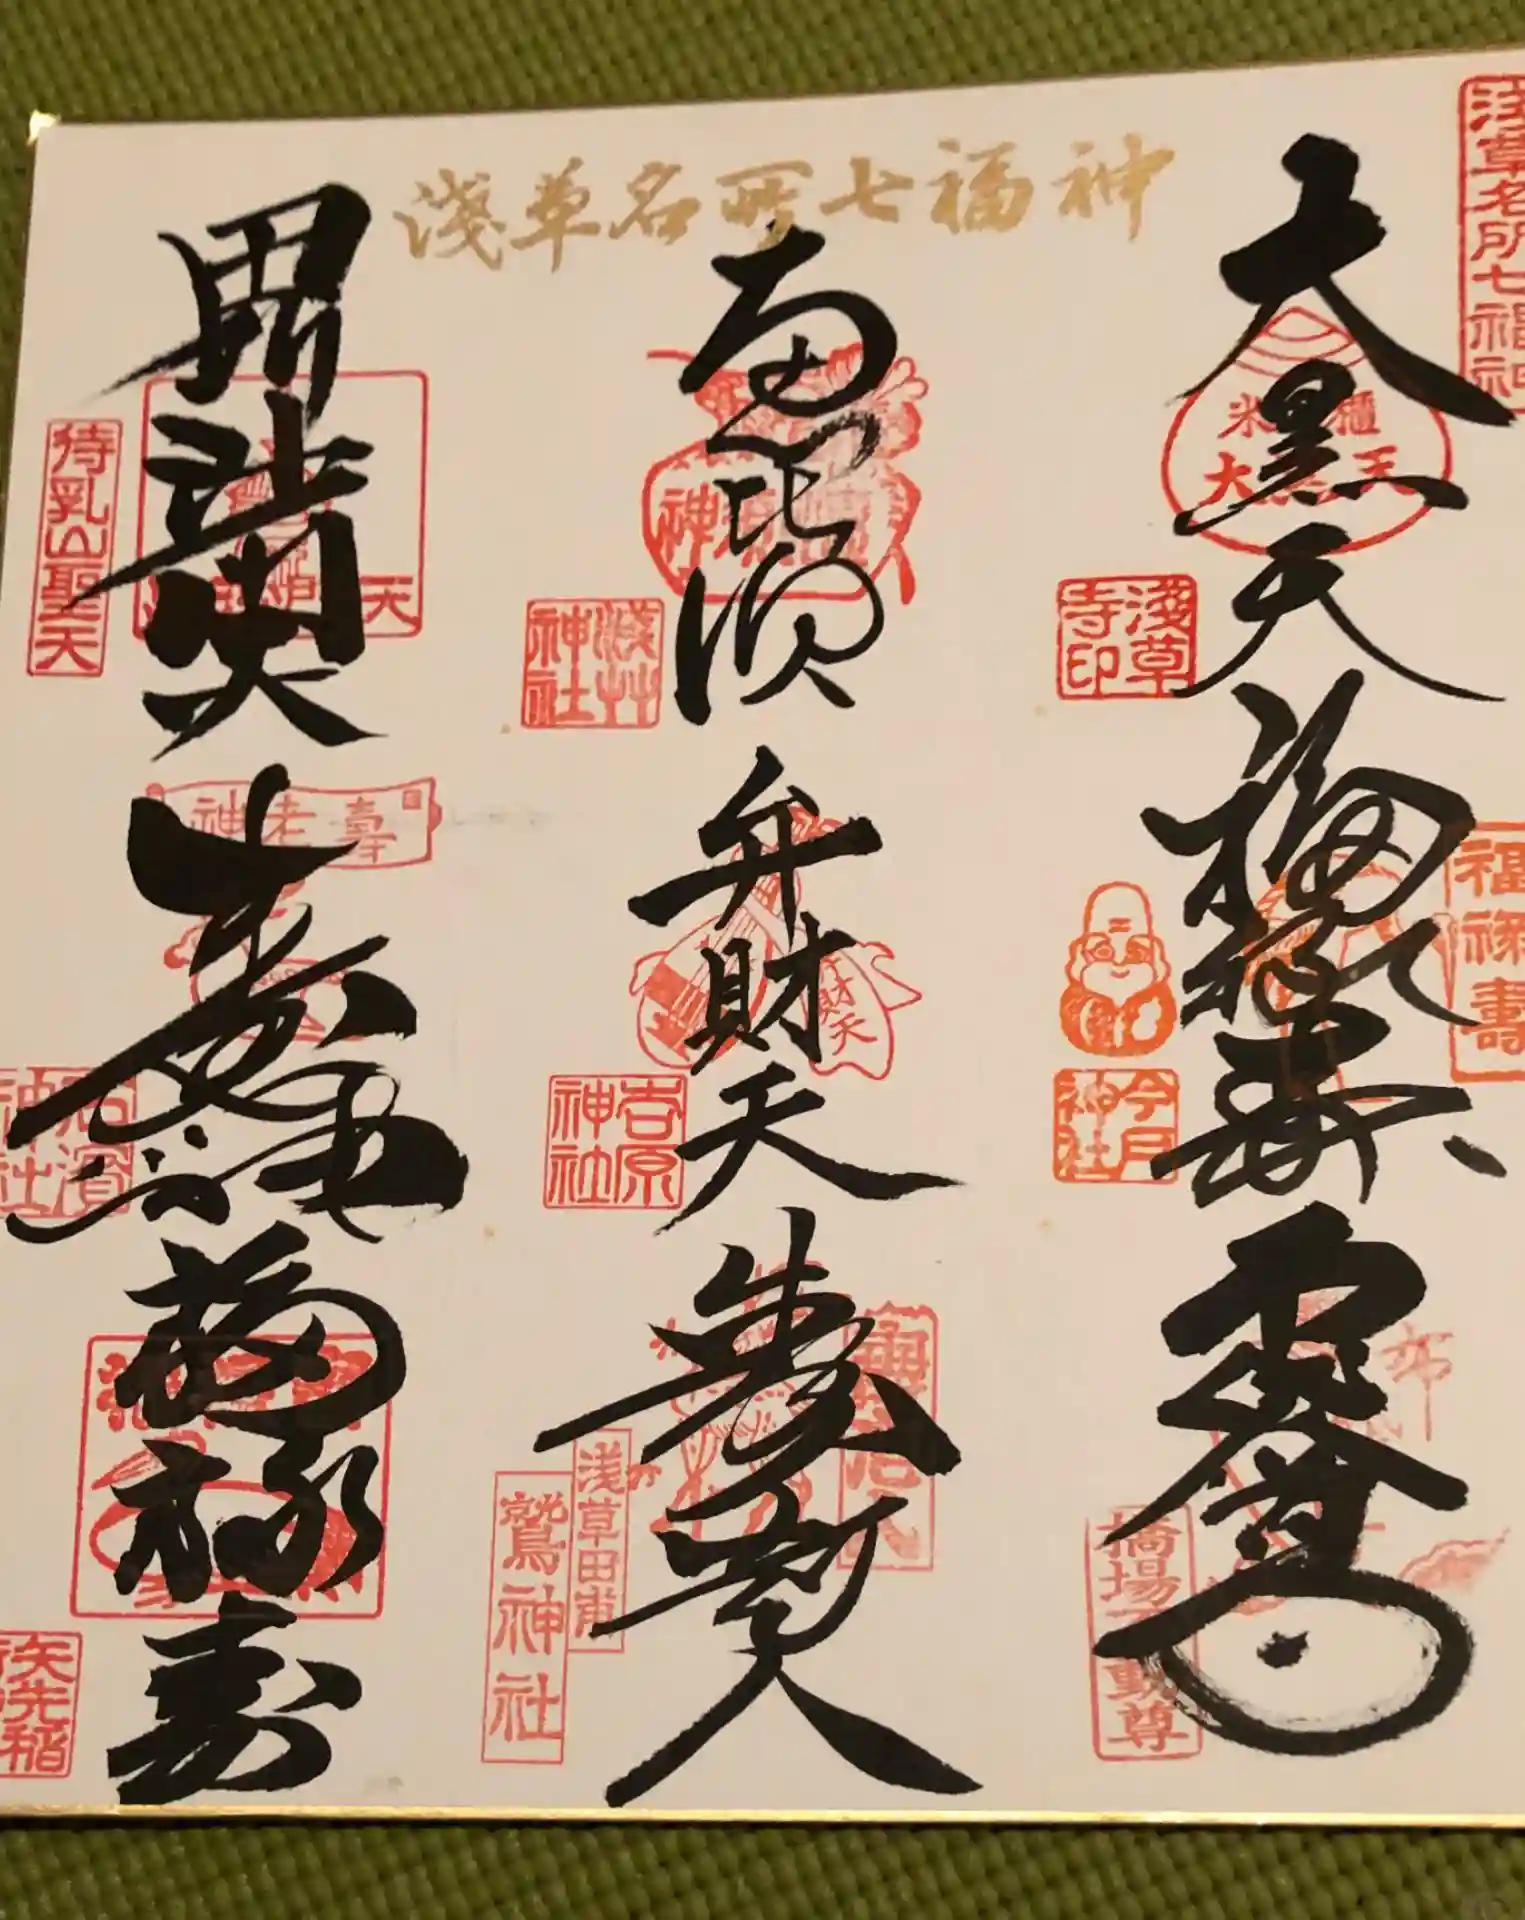 淺草名所七福神
浅草名所七福神
大黒天
米櫃
大黒天
淺草
寺印
福禄寿
福禄壽
今戸
神社
布
橋場不動尊
恵比須
淺草
神社
弁財天
財天
吉原
神社
寿老人
浅草田甫
鷲神社
毘沙門天
天
待乳山聖天
壽老神
石濱
神社
福禄寿
矢先稲